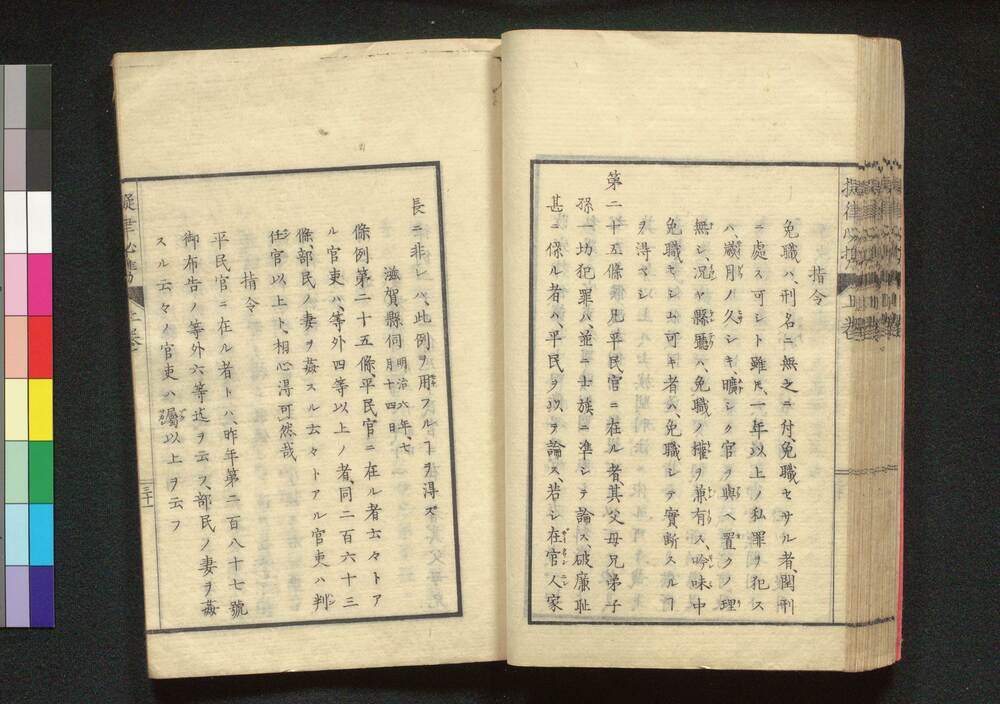 免職ハ、刑名ニ無之ニ付、免職セサル者、閏刑
指令
ニ處ス可シト雖𪜈、一年以上ノ私罪ヲ犯ス
ハ、歳月ノ久シキ、曠シク官ヲ與ヘ置クノ理
無シ、况ヤ縣廳ハ、免職ノ權ヲ兼有ス、吟味中
免職セシム可キ者ハ、免職シテ實斷スルヿ
ヲ得ベシ
第二十五條、凡平民官ニ在ル者其父母兄弟子
孫一坊犯罪ハ、並ニ士族ニ準シテ論ス、破廉耻
甚ニ係ル者ハ、平民ヲ以テ論ス、若シ在官人家
長ニ非レハ、此例ヲ用フルヿヲ得ズ
滋賀縣伺 明治六年、七月十四日
條例第二十五條、平民官ニ在ル者云々トア
ル官吏ハ、等外四等以上ノ者、同二百六十三
條、部民ノ妻ヲ姦スル云々トアル官吏ハ判
任官以上ト、相心得可然哉
指令
平民官ニ在ル者トハ、昨年第二百八十七號
御布告ノ等外六等迄ヲ云フ、部民ノ妻ヲ姦
スル云々ノ官吏ハ屬以上ヲ云フ
三十一